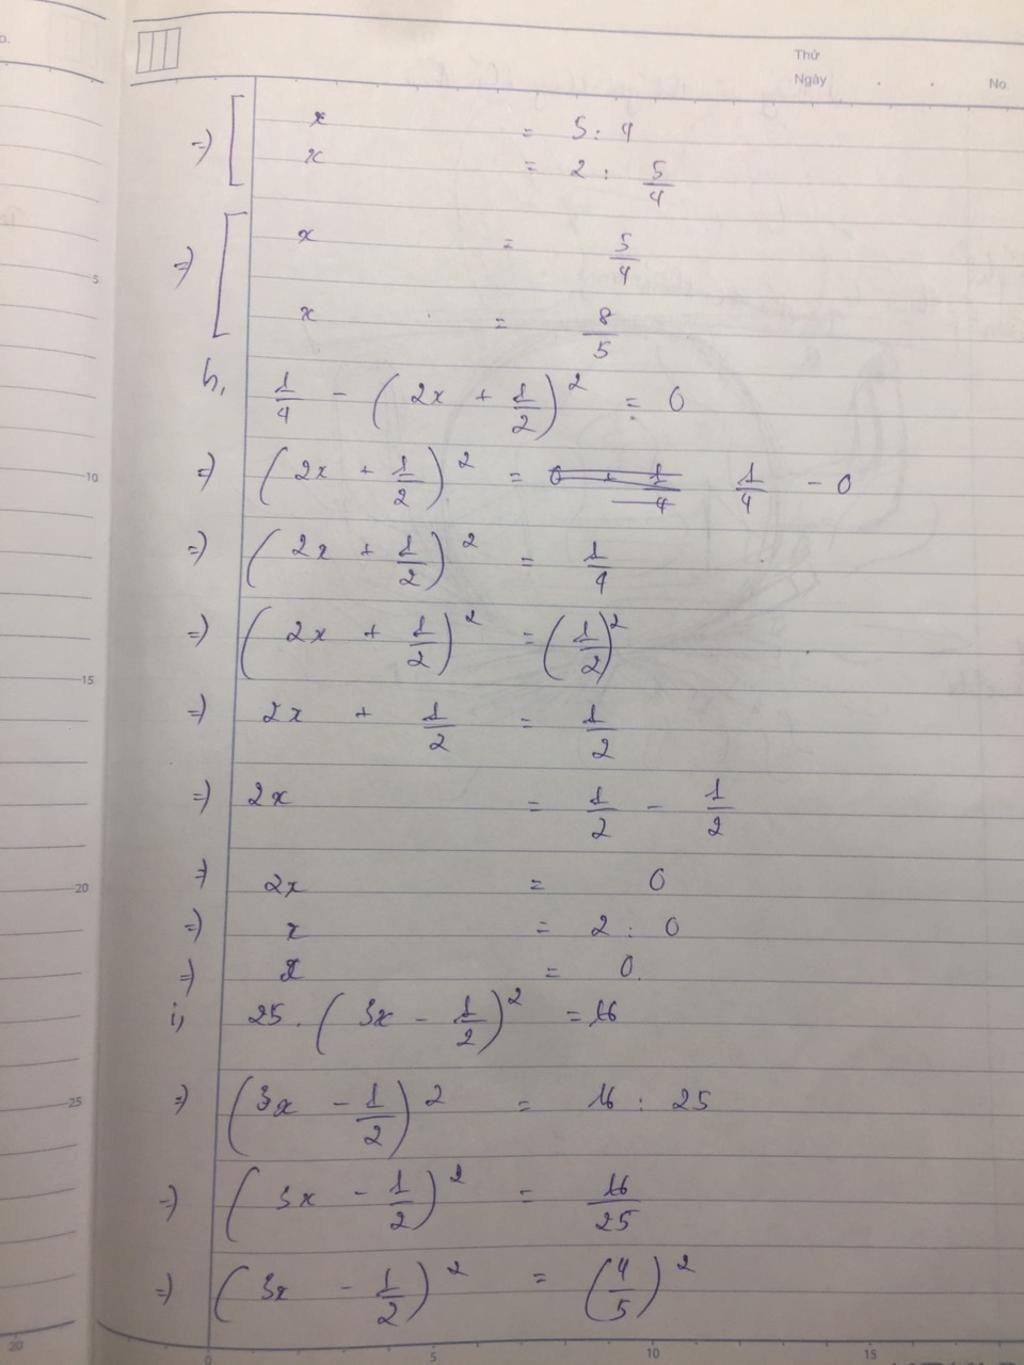 Thứ
Ngày No
=> [ x = 5 : 4
x = 2 : 5/4
=> [ x = 5/4
x = 8/5
h, 1/4 - (2x + 1/2)^2 = 0
=> (2x + 1/2)^2 = 0 + 1/4 1/4 - 0
=> (2x + 1/2)^2 = 1/4
=> (2x + 1/2)^2 = (1/2)^2
=> 2x + 1/2 = 1/2
=> 2x = 1/2 - 1/2
=> 2x = 0
=> x = 2 : 0
=> x = 0.
i, 25 . (3x - 1/2)^2 = 16
=> (3x - 1/2)^2 = 16 : 25
=> (3x - 1/2)^2 = 16/25
=> (3x - 1/2)^2 = (4/5)^2
5
10
15
20
25
20
0 5 10 15